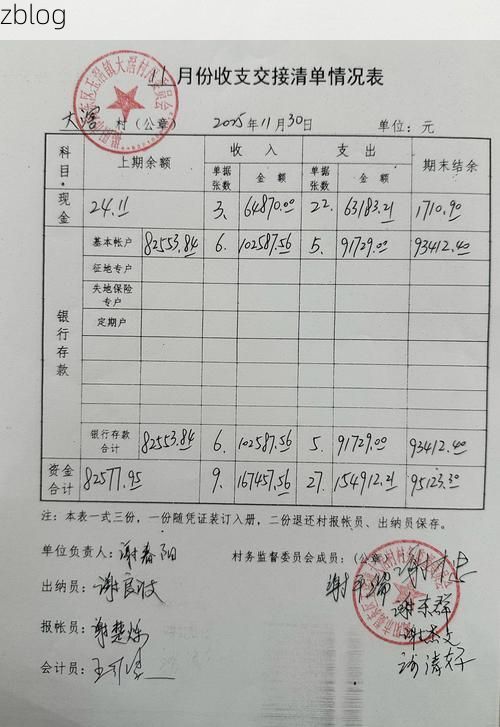 zblog
11月份收支交接清单情况表
大滘 村（公章） 2025年11月30日 单位：元
科目 上期余额 收入 支出 期末结余
单据张数 金额 单据张数 金额
现金 24.11 3. 64870.00 22. 63183.21 1710.90
银行存款
基本帐户 82553.84 6. 102587.56 5. 91729.00 93412.40
征地专户
失地保险专户
定期户
银行存款合计 82553.84 6. 102587.56 5. 91729.00 93412.40
资金合计 82577.95 9. 167457.56 27. 154912.21 95123.30
注：本表一式三份，一份随凭证装订入册，二份退还村报帐员、出纳员保存。
单位负责人：谢春阳 村务监督委员会成员：（公章）
出纳员：谢良波
报帐员：谢楚烁
会计员：